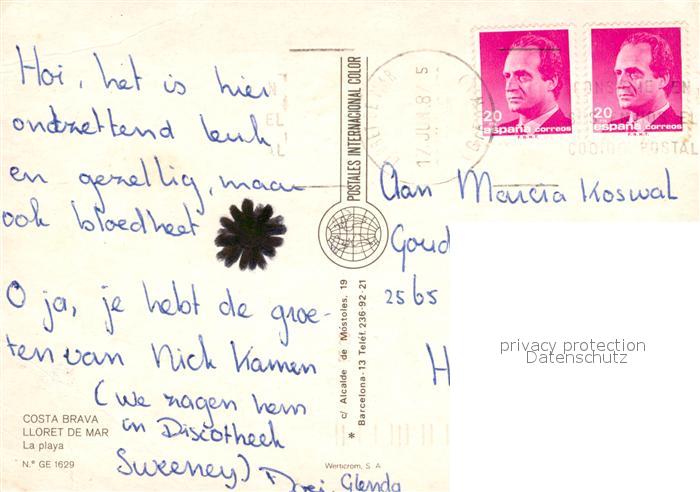 Hoi, het is hier
ontzettend leuk
en gezellig, maar
ook bloedheet
O ja, je hebt de groe-
ten van Nick Kamen
(we zagen hem
in Discotheek
Sweeney) Doei, Glenda
COSTA BRAVA
LLORET DE MAR
La playa
N.° GE 1629
POSTALES INTERNACIONAL COLOR
c/ Alcalde de Móstoles, 19
* Barcelona-13 Teléf. 236-92-21
Werticrom, S. A.
17 JUN 87
CODIGO POSTAL
20
españa correos
F.N.M.T.
20
españa correos
F.N.M.T.
Aan Marcia Koswal
Goud
2565
H
privacy protection
Datenschutz